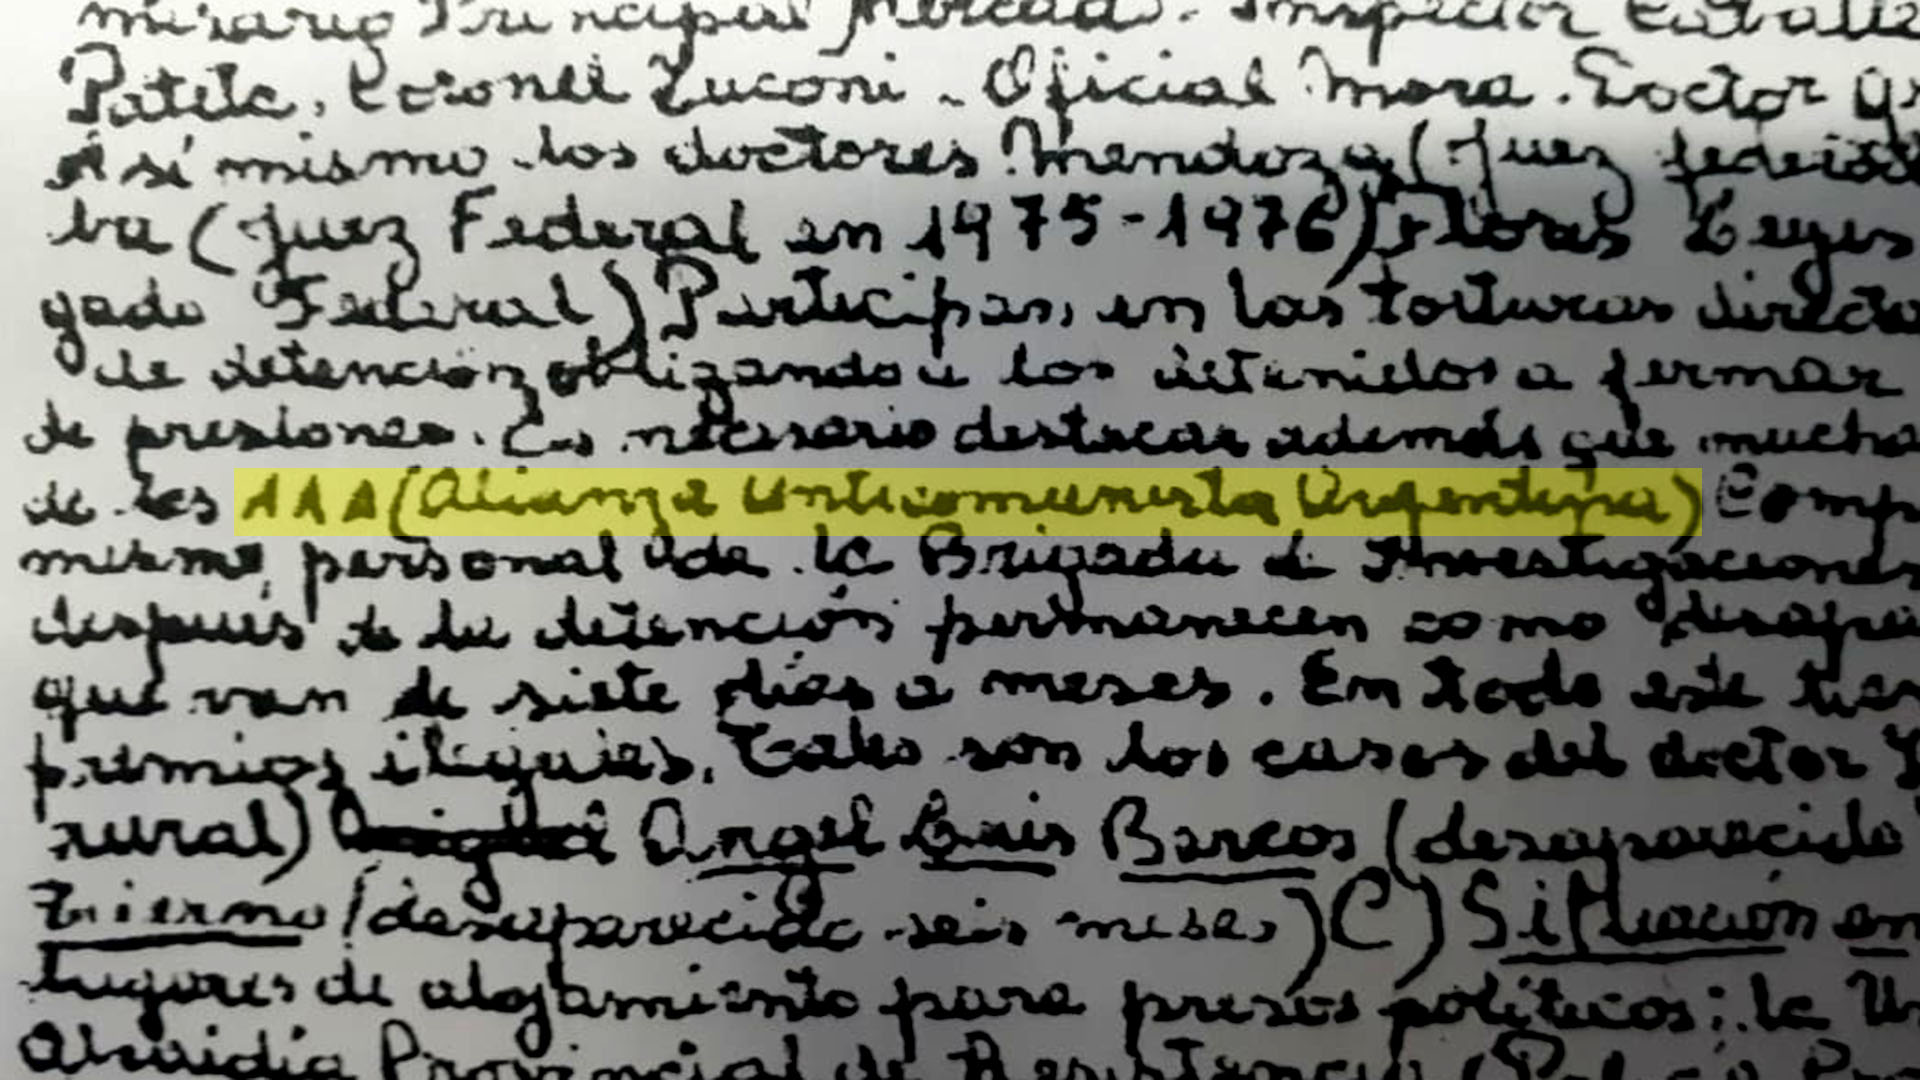 misario Principal
Patela, Coronel Zuconi - Oficial Mora. Doctor
Así mismo los doctores Mendoza (Juez federal
ba (Juez Federal en 1975-1976) Flores Leyes
gado Federal) Participan, en las torturas directa
de detención obligando a los detenidos a firmar
de presiones. Es necesario destacar además que mucha
de las AAA (Alianza Anticomunista Argentina)
mismo, personal de la Brigada de Investigaciones
después de la detención permanecen como
que van de siete días a meses. En todo este
ilegales. Tales son los casos del doctor
rural) Angel Luis Barcos (desaparecido
(desaparecido seis meses) C) Situación en
lugares de alojamiento para presos políticos; la
Alcaidía Provincial de Resistencia